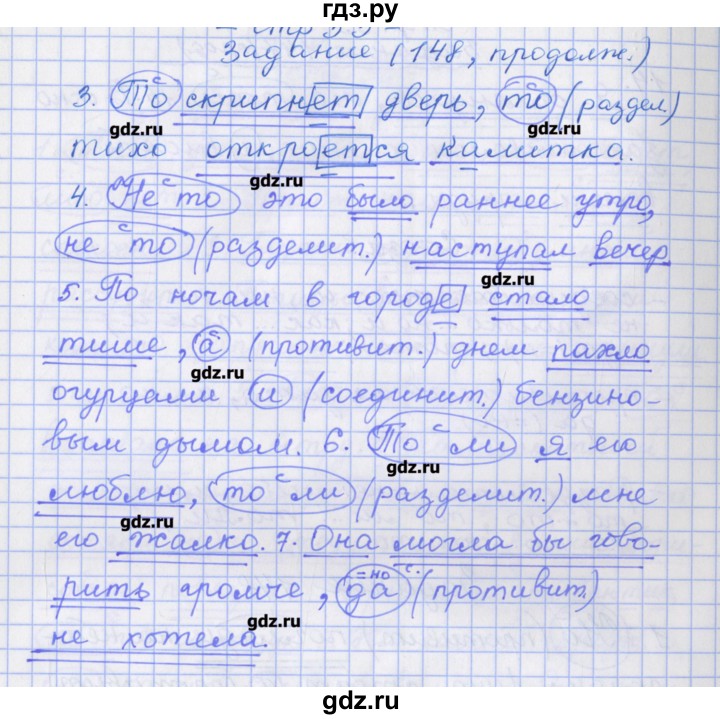 гдз.ру
Задание (148, продолж.)
3. То скрипнет дверь, то (раздел.)
gdz.ru
gdz.ru
тихо откроется калитка.
gdz.ru
4. Не то это было раннее утро,
не то (разделит.) наступал вечер
gdz.ru
5. По ночам в городе стало
тише, а (противит.) днем пахло
gdz.ru
огурцами и (соединит.) бензино-
вым дымом. 6. То ли я его
gdz.ru
люблю, то ли (разделит.) мне
gdz.ru
его жалко. 7. Она могла бы гово-
рить громче, да (противит.)
= но
с.
gdz.ru
не хотела.
gdz.ru